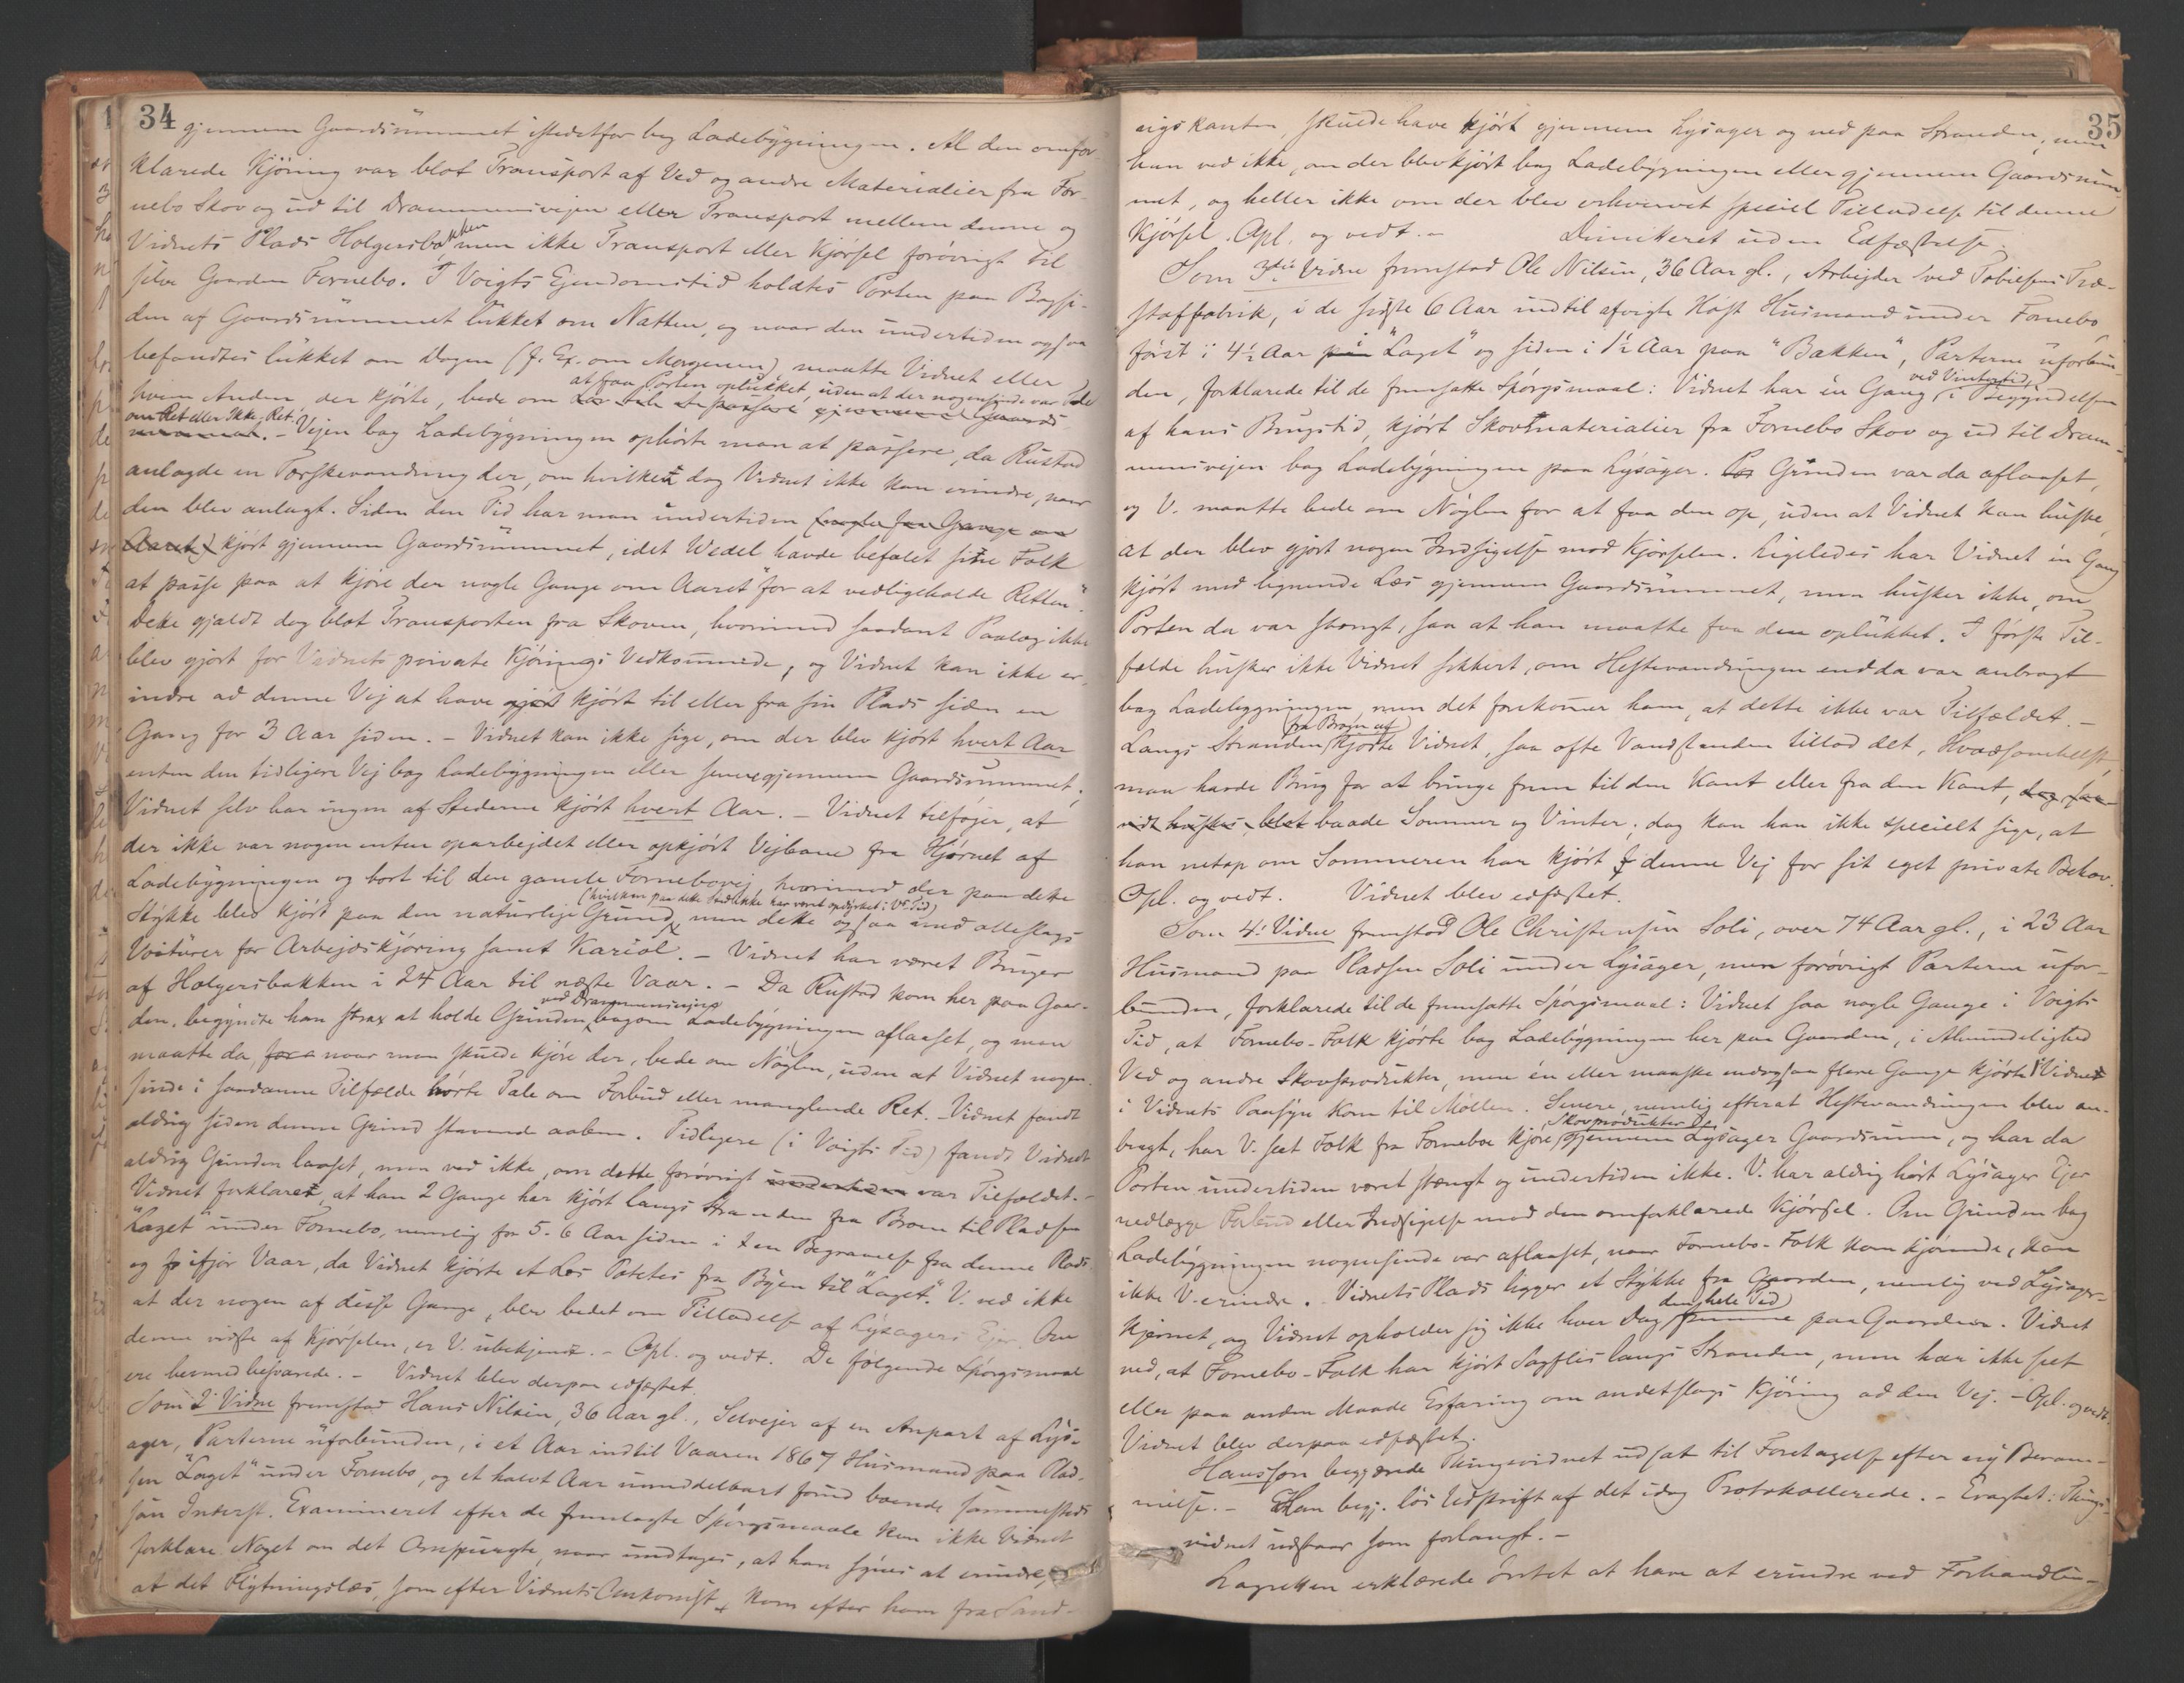 34
gjennem Gaardsrummet istedetfor bag Ladebygningen. Al den omfor-
klarede Kjöring var blot Transport af Ved og andre Materialier fra For-
nebo Skov og ud til Drammensvejen eller Transport mellem denne og
Vidnets Plads Holgersbakken men ikke Transport eller Kjörsel forövrigt til
selve Gaarden Fornebo. I Voigts Ejendomstid holdtes Porten paa Bagsi-
den af Gaardsrummet lukket om Natten, og naar den undertiden ogsaa
befandtes lukket om Dagen (f. Ex. om Morgenen) maatte Vidnet eller
hvem Anden, der kjörte, bede om at faa Porten oplukket, uden at der nogensinde var Tale
om Ret eller Ikke-Ret. - Vejen bag Ladebygningen ophörte man at passere, da Rustad
anlagde en Tærskevandring der, om hvilken dog Vidnet ikke kan erindre, naar
den blev anlagt. Siden den Tid har man undertiden (nogle faa Gange om
Aaret) kjört gjennem Gaardsrummet, idet Wedel havde befalet sine Folk
at passe paa at kjöre der nogle Gange om Aaret "for at vedligeholde Retten".
Dette gjaldt dog blot Transporten fra Skoven, hvorimod saadant Paalæg ikke
blev gjort for Vidnets private Kjörings Vedkommende, og Vidnet kan ikke er-
indre ad denne Vej at have kjört til eller fra sin Plads siden en
Gang for 3 Aar siden. - Vidnet kan ikke sige, om der blev kjört hvert Aar
enten den tidligere Vej bag Ladebygningen eller senere gjennem Gaardsrummet;
Vidnet selv har ingen af Stederne kjört hvert Aar. - Vidnet tilföjer, at
der ikke var nogen enten oparbejdet eller opkjört Vejbane fra Hjörnet af
Ladebygningen og bort til den gamle Fornebovej, hvorimod der paa dette
Stykke blev kjört paa den naturlige Grund (hvilken paa dette Sted ikke har været opdyrket i V.s Tid) men dette ogsaa med alleslags
Voiturer for Arbejdskjöring samt Kariol. - Vidnet har været Bruger
af Holgersbakken i 24 Aar til næste Vaar. - Da Rustad kom her paa Gaar-
den, begyndte han strax at holde Grinden ved Drammensvejen bagom Ladebygningen aflaaset, og man
maatte da, naar man skulde kjöre der, bede om Nöglen, uden at Vidnet nogen-
sinde i saadanne Tilfælde hörte Tale om Forbud eller manglende Ret. Vidnet fandt
aldrig siden denne Grind staaende aaben. Tidligere (i Voigts Tid) fandt Vidnet
aldrig Grinden laaset, men ved ikke, om dette forövrigt undertiden var Tilfældet. -
Vidnet forklaret, at han 2 Gange har kjört langs Stranden fra Broen til Pladsen
"Laget" under Fornebo, nemlig for 5-6 Aar siden i en Begravelse fra denne Plads
og ifjor Vaar, da Vidnet kjörte et Læs Potetes fra Byen til "Laget". V. ved ikke
at der nogen af disse Gange, blev bedet om Tilladelse af Lysagers Ejer. Om
denne vidste af Kjörselen, er V. ubekjendt. - Opl. og vedt. De fölgende Spörgsmaal
ere hermed besvarede. - Vidnet blev derpaa edfæstet.
Som 2' Vidne fremstod Hans Nilsen, 36 Aar gl., Selvejer af en Anpart af Lys-
ager, Parterne uforbunden, i et Aar indtil Vaaren 1867 Husmand paa Plad-
sen "Laget" under Fornebo, og et halvt Aar umiddelbart forud boende sammesteds
som Inderst. Examineret efter de fremlagte Spörgsmaale kan ikke Vidnet
forklare Noget om det Omspurgte, naar undtages, at han synes at erindre,
at det Flytningslæs, som efter Vidnets Ankomst kom efter ham fra Sand-
35
vigskanten, skulde have kjört gjennem Lysager og ned paa Stranden, men
han ved ikke, om der blev kjört bag Ladebygningen eller gjennem Gaardsrum-
met, og heller ikke om der blev erhvervet speciel Tilladelse til denne
Kjörsel. Opl. og vedt. - Dimitteret uden Edfæstelse.
Som 3die Vidne fremstod Ole Nilsen, 36 Aar gl., Arbejder ved Tobiesens Træ-
stoffabrik, i de sidste 6 Aar indtil afvigte Höst Husmand under Fornebo,
först i 4½ Aar i "Laget" og siden i 1½ Aar paa "Bakken", Parterne uforbun-
den, forklarede til de fremsatte Spörgsmaal: Vidnet har én Gang ved Vintertid, i Begyndelsen
af hans Brugstid, kjört Skovmaterialier fra Fornebo Skov og ud til Dram-
mensvejen bag Ladebygningen paa Lysager. Grinden var da aflaaset,
og V. maatte bede om Nöglen for at faa den op, uden at Vidnet kan huske,
at der blev gjort nogen Indsigelse mod Kjörselen. Ligeledes har Vidnet én Gang
kjört med lignende Læs gjennem Gaardsrummet, men husker ikke, om
Porten da var stængt, saa at han maatte faa den oplukket. I förste Til-
fælde husker ikke Vidnet sikkert, om Hestevandringen endda var anbragt
bag Ladebygningen, men det forekommer ham, at dette ikke var Tilfældet. -
Langs Stranden (fra Broen af) kjörte Vidnet, saa ofte Vandstanden tillod det, Hvadsomhelst
man havde Brug for at bringe frem til den Kant eller fra den Kant,
baade Sommer og Vinter; dog kan han ikke specielt sige, at
han netop om Sommeren har kjört denne Vej for sit eget private Behov.
Opl. og vedt. Vidnet blev edfæstet.
Som 4' Vidne fremstod Ole Christensen Soli, over 74 Aar gl., i 23 Aar
Husmand paa Pladsen Soli under Lysager, men forövrigt Parterne ufor-
bunden, forklarede til de fremsatte Spörgsmaal: Vidnet saa nogle Gange i Voigts
Tid, at Fornebo-Folk kjörte bag Ladebygningen her paa Gaarden, i Almindelighed
Ved og andre Skovprodukter, men én eller maaske endogsaa flere Gange kjörte
i Vidnets Paasyn Korn til Möllen. Senere, nemlig efterat Hestevandringen blev an-
bragt, har V. seet Folk fra Fornebo kjöre Skovprodukter gjennem Lysager Gaardsrum, og har da
Porten undertiden været stængt og undertiden ikke. V. har aldrig hört Lysager Ejer
nedlægge Forbud eller Indsigelse mod den omforklarede Kjörsel. Om Grinden bag
Ladebygningen nogensinde var aflaaset, naar Fornebo-Folk kom kjörende, kan
ikke V. erindre. Vidnets Plads ligger et Stykke fra Gaarden, nemlig ved Lysager-
kjernet, og Vidnet opholder sig ikke hver Dag den hele Tid paa Gaarden. Vidnet
ved, at Fornebo-Folk har kjört Sagflis langs Stranden, men har ikke seet
eller paa anden Maade Erfaring om andetslags Kjöring ad den Vej. - Opl. og vedt.
Vidnet blev derpaa edfæstet.
Hansson begjærede Thingsvidnet udsat til Foretagelse efter ny Beram-
melse. - Han begj. lös Udskrift af det idag Protokollerede. - Eragtet: Things-
vidnet udstaar som forlangt. -
Lagretten erklærede Intet at have at erindre ved Forhandlin-